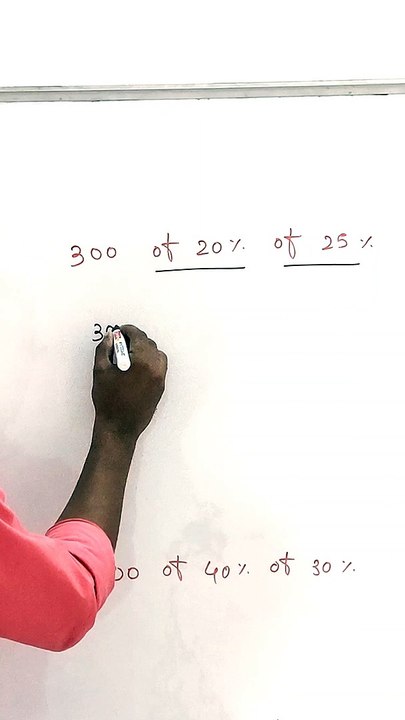 300 of 20% of 25%
3
00 of 40% of 30%